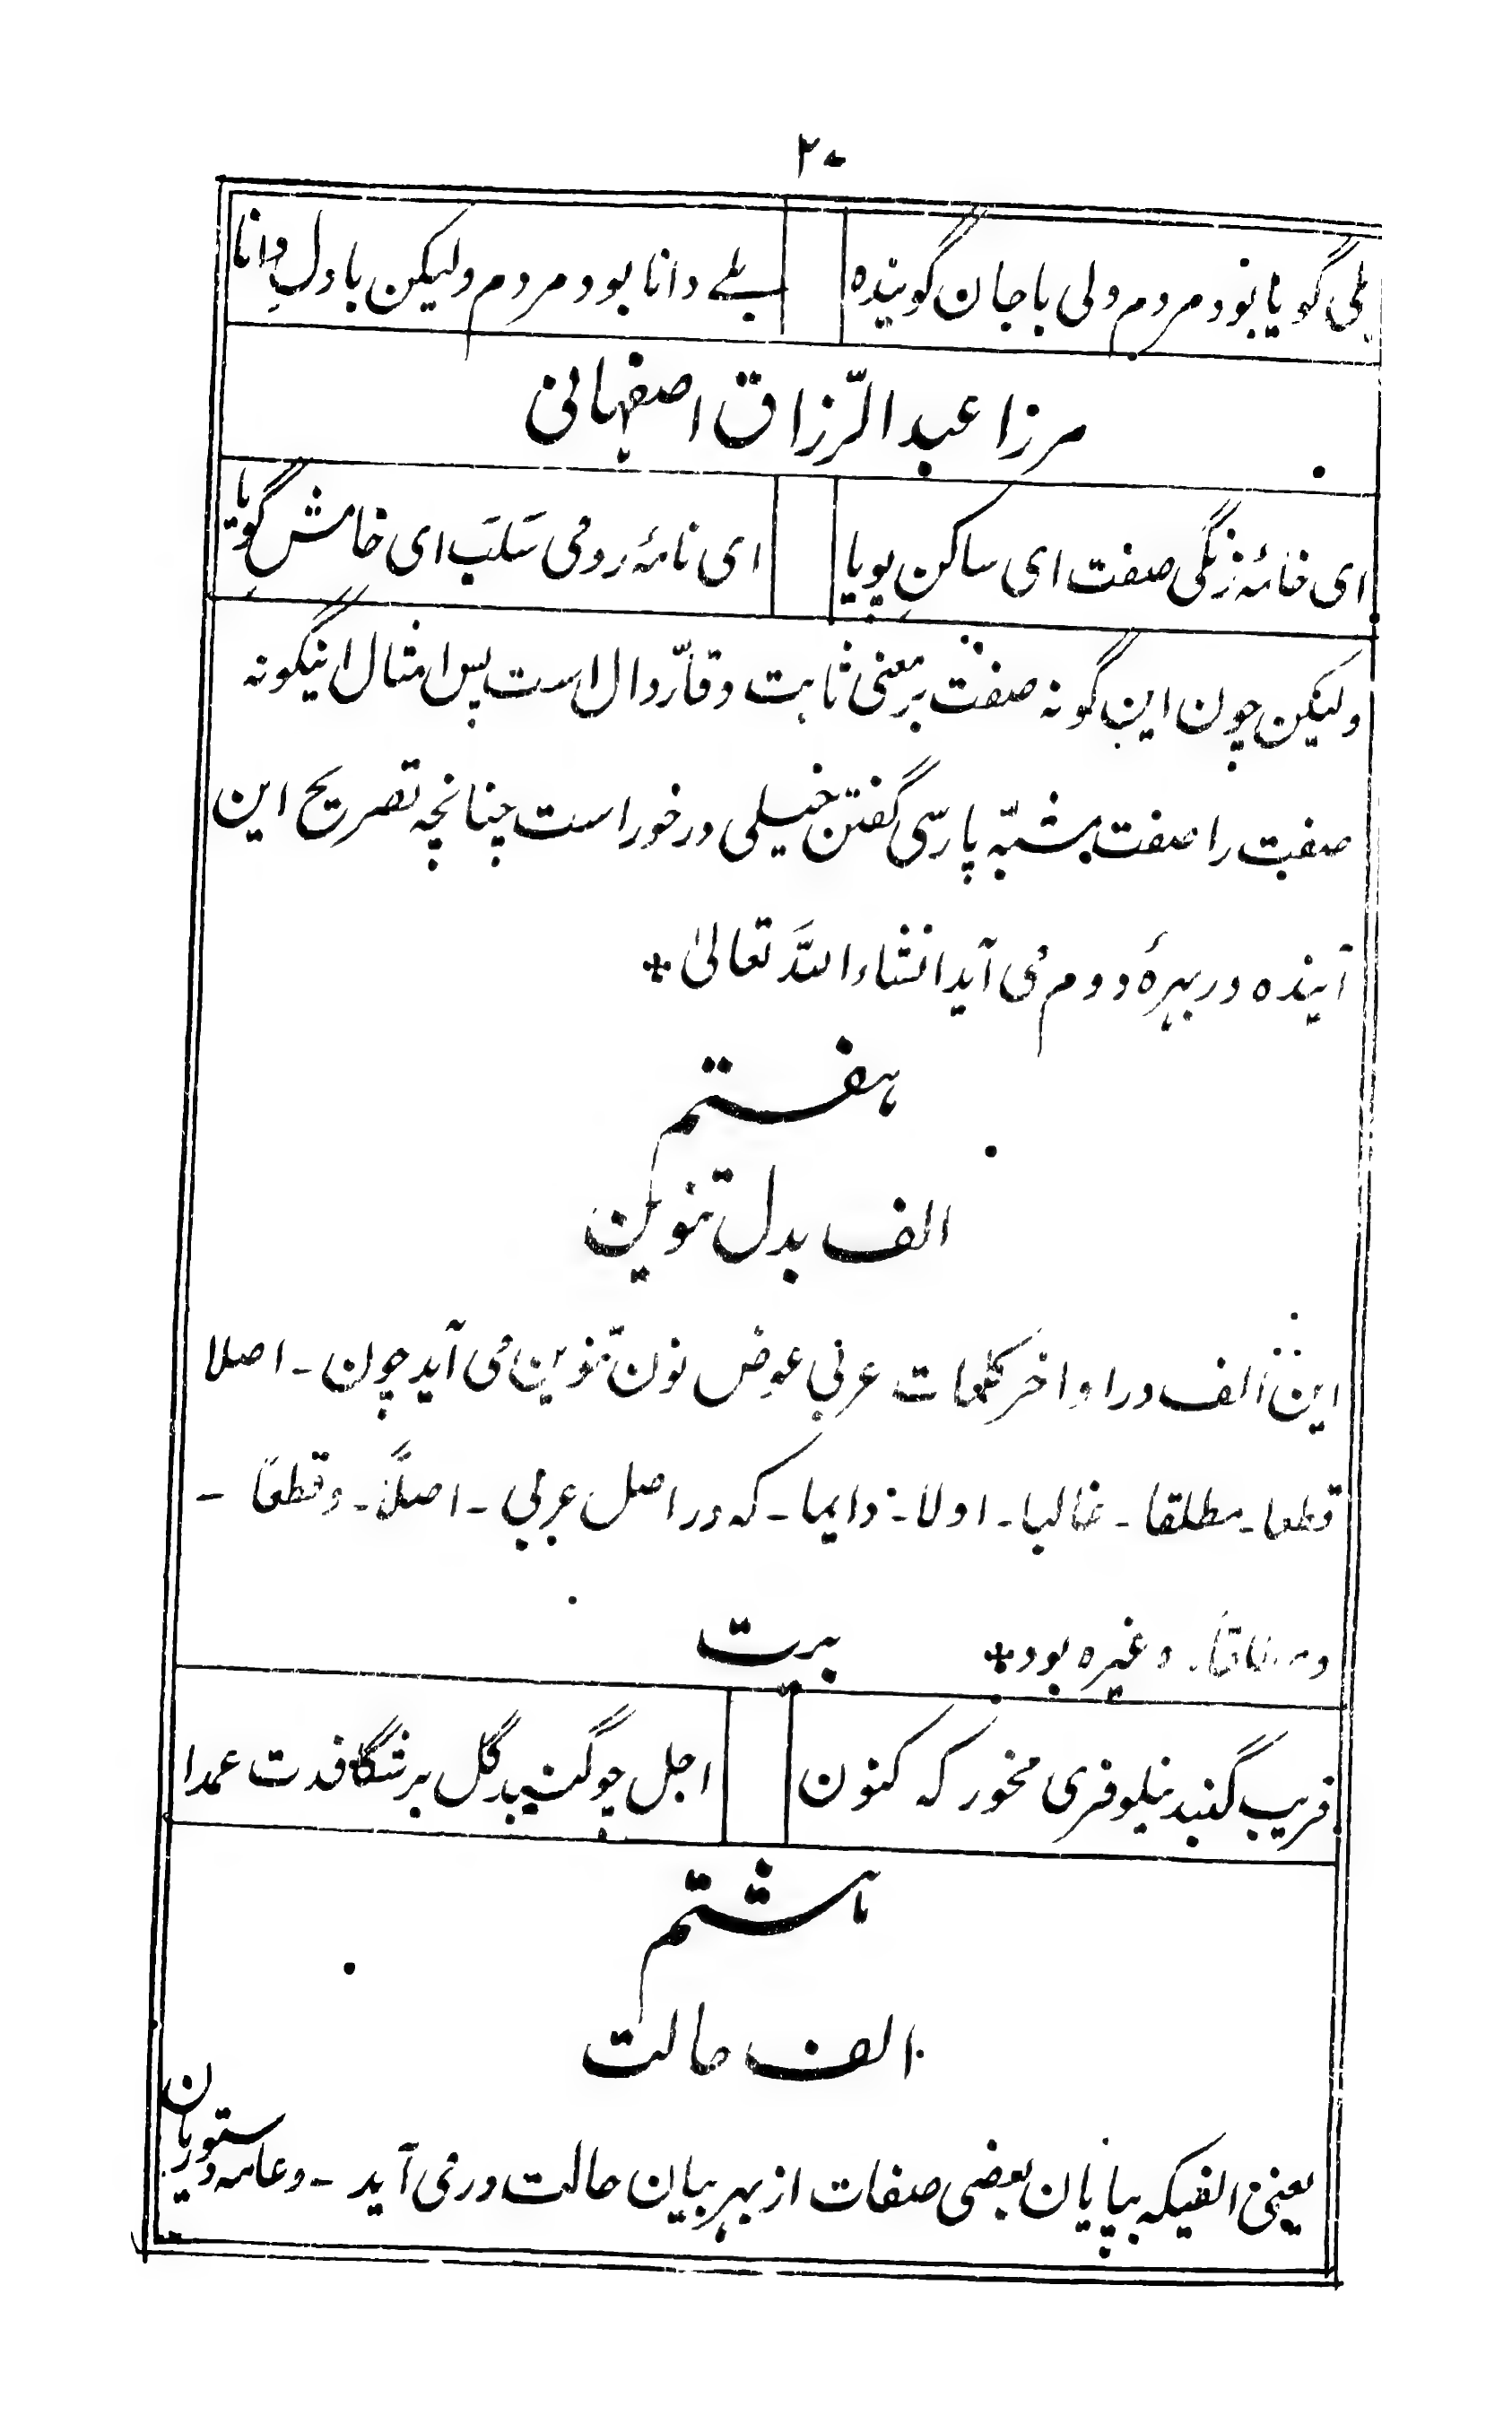 ۲۰
بلی گویا بود مردم ولی با جان گوینده بلے دانا بود مردم ولیکن با دلِ دانا
مرزا عبد الرّزاق اصفہانی
ای خامۂ زنگی صفت ای ساکنِ پویا ای نامۂ رومی سَلَب ای خامش گویا
ولیکن چون این گونه صفت بر معنی ثابت و قارّ دال است پس امثال اینگونه
صفت را صفت مشبّه پارسی گفتن خیلی درخور است چنانچه تصریح این
آینده در بهرۀ دوم می آید انشاء اللّه تعالیٰ *
ہفتم
الف بدل تنوین
این الف در اواخر کلمات عربی عوض نون تنوین می آید چون ـ اصلا
قطعا ـ مطلقا ـ غالبا ـ اولا ـ دایما ـ که در اصل عربی ـ اصلاً ـ و قطعاً ـ
و مطلقاً ـ وغیره بود *
بیت
فریب گنبد نیلوفری مخور که کنون اجل چو گنبد گل بر شگافدت عمدا
ہشتم
الف حالت
یعنی الفیکه بپایان بعضی صفات از بهر بیان حالت در می آید ـ و عامه دستوریان